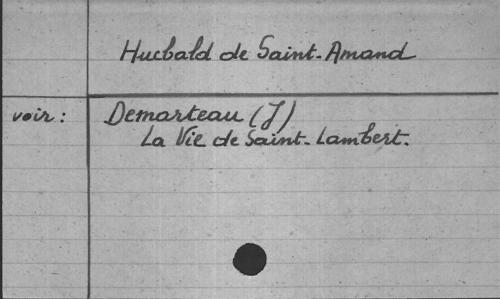 Hucbald de Saint-Amand
voir : Demarteau (J)
La Vie de Saint-Lambert.